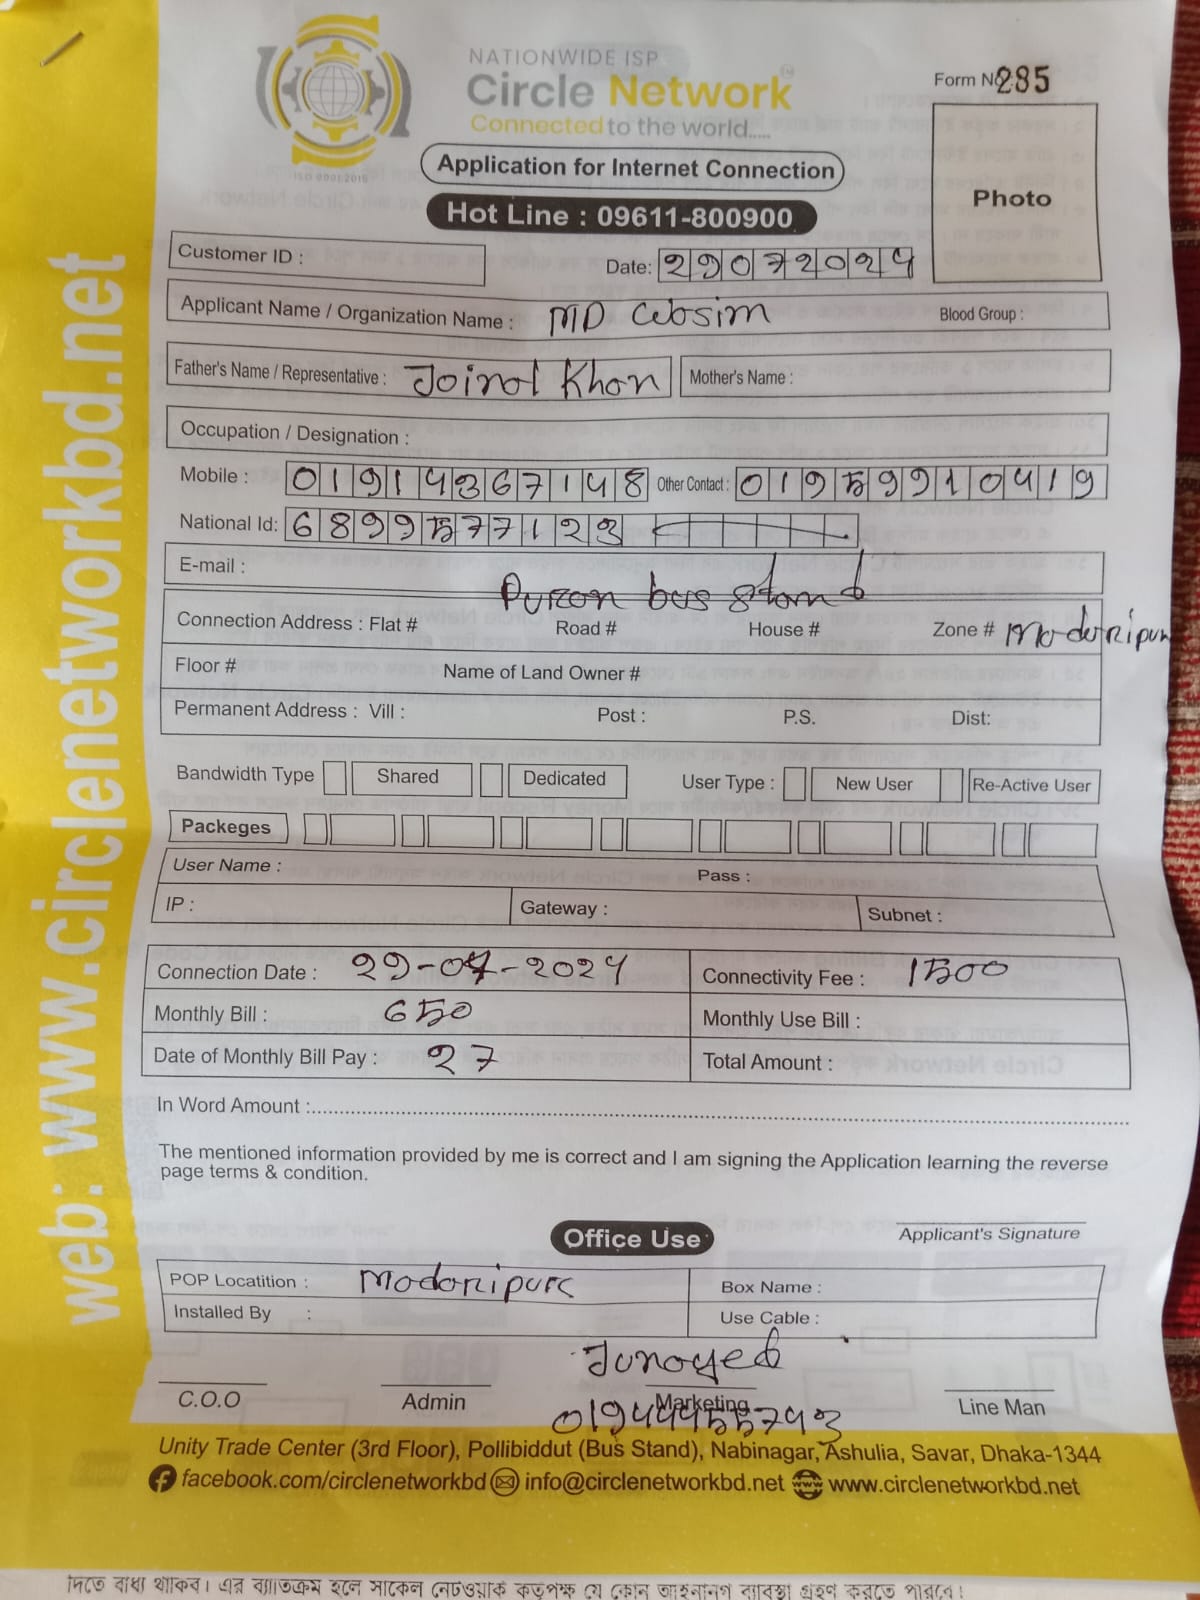 NATIONWIDE ISP
Circle Network
Connected to the world.....
ISO 9001:2015
Form No 285
Application for Internet Connection
Photo
Hot Line : 09611-800900
Customer ID :
Date: 29072024
Applicant Name / Organization Name : MD
Blood Group :
Father's Name / Representative : Joinol Khan
Mother's Name :
Occupation / Designation :
Mobile : 01914367148 Other Contact : 01959910419
National Id: 6899577123
E-mail :
Puran bus stand
Connection Address : Flat # Road # House # Zone # Modonipur
Floor # Name of Land Owner #
Permanent Address : Vill : Post : P.S. Dist:
Bandwidth Type Shared Dedicated User Type : New User Re-Active User
Packeges
User Name : Pass :
IP : Gateway : Subnet :
Connection Date : 29-07-2024 Connectivity Fee : 1500
Monthly Bill : 650 Monthly Use Bill :
Date of Monthly Bill Pay : 27 Total Amount :
In Word Amount :
The mentioned information provided by me is correct and I am signing the Application learning the reverse
page terms & condition.
Applicant's Signature
Office Use
POP Locatition : Modonipur Box Name :
Installed By : Use Cable :
Junayed
C.O.O Admin Marketing Line Man
Unity Trade Center (3rd Floor), Pollibiddut (Bus Stand), Nabinagar, Ashulia, Savar, Dhaka-1344
facebook.com/circlenetworkbd info@circlenetworkbd.net www.circlenetworkbd.net
web: www.circlenetworkbd.net
দিতে বাধ্য থাকিব। এর ব্যাতিক্রম হলে সার্কেল নেটওয়ার্ক কর্তৃপক্ষ যে কোন আইনানুগ ব্যাবস্থা গ্রহণ করতে পারবে।